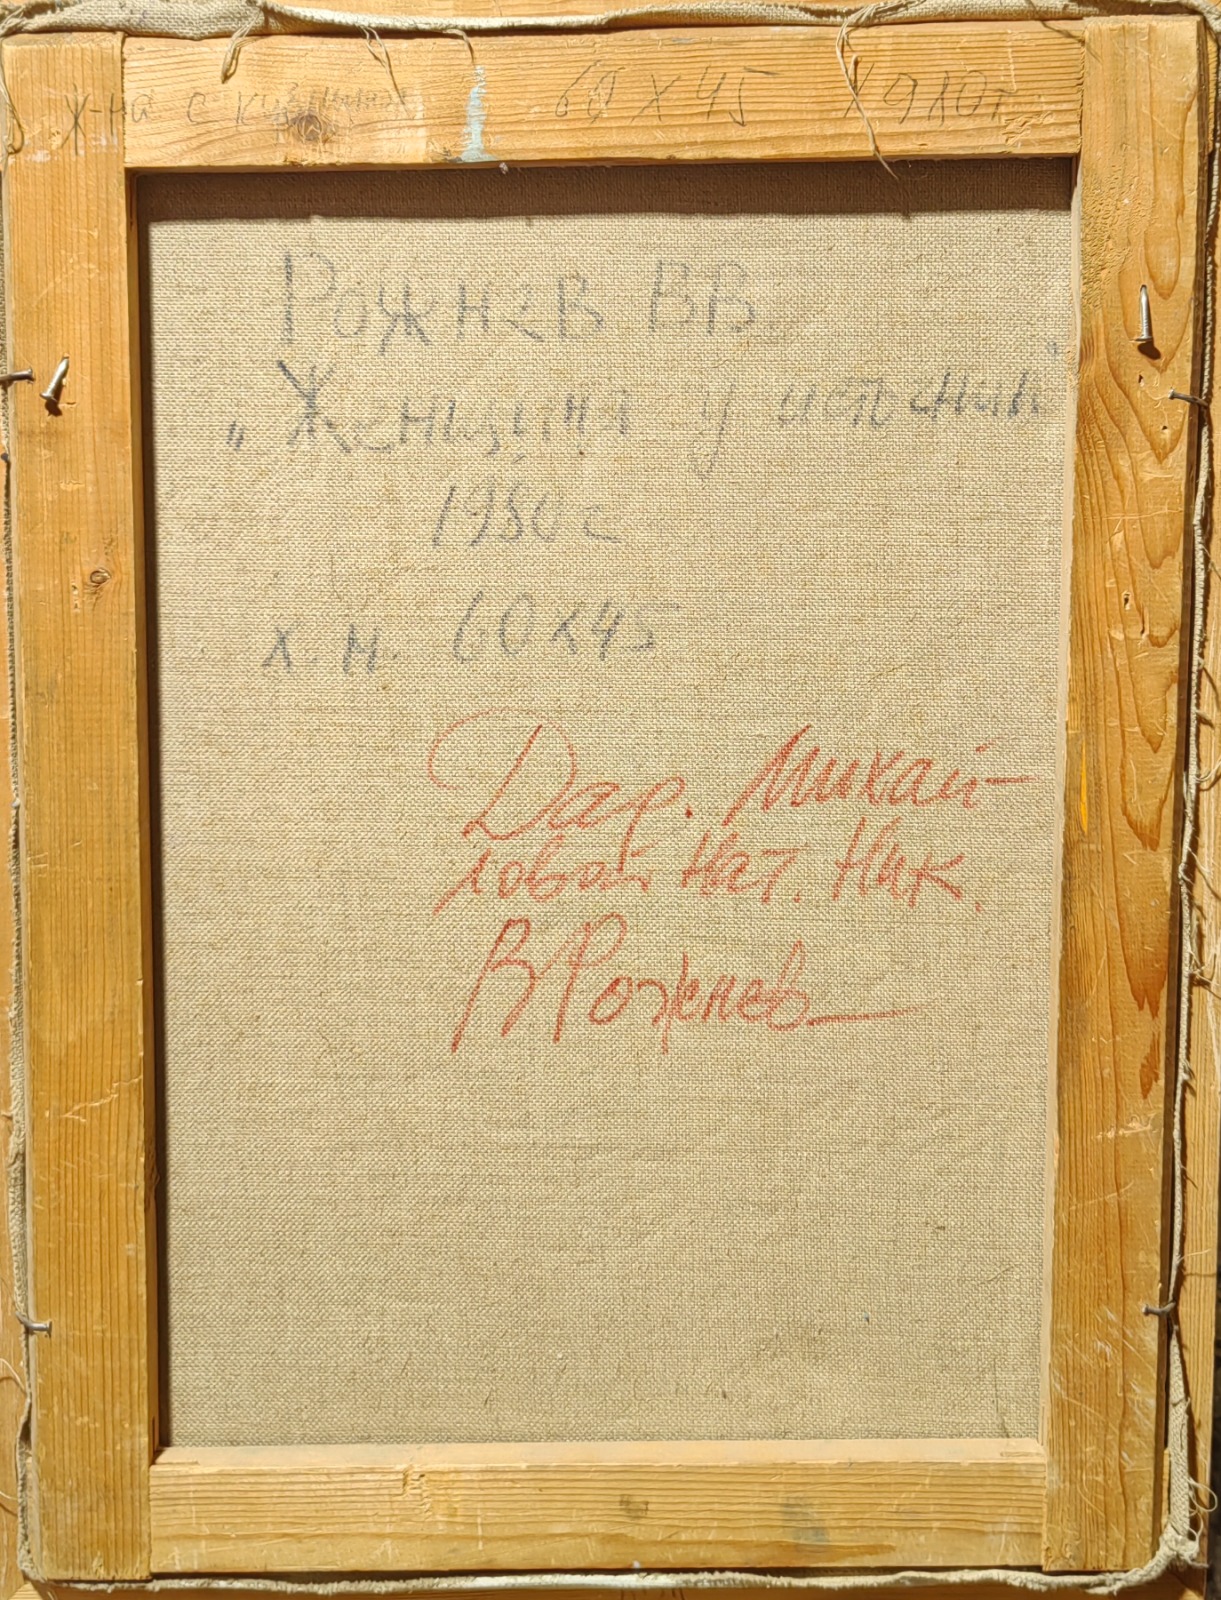 Ж-на с кувшином 60 х 45
Рожнев ВВ.
„Женщина у источник
1980 г
х. м. 60х45
Дар. Михай-
ловой Нат. Ник.
ВРожнев